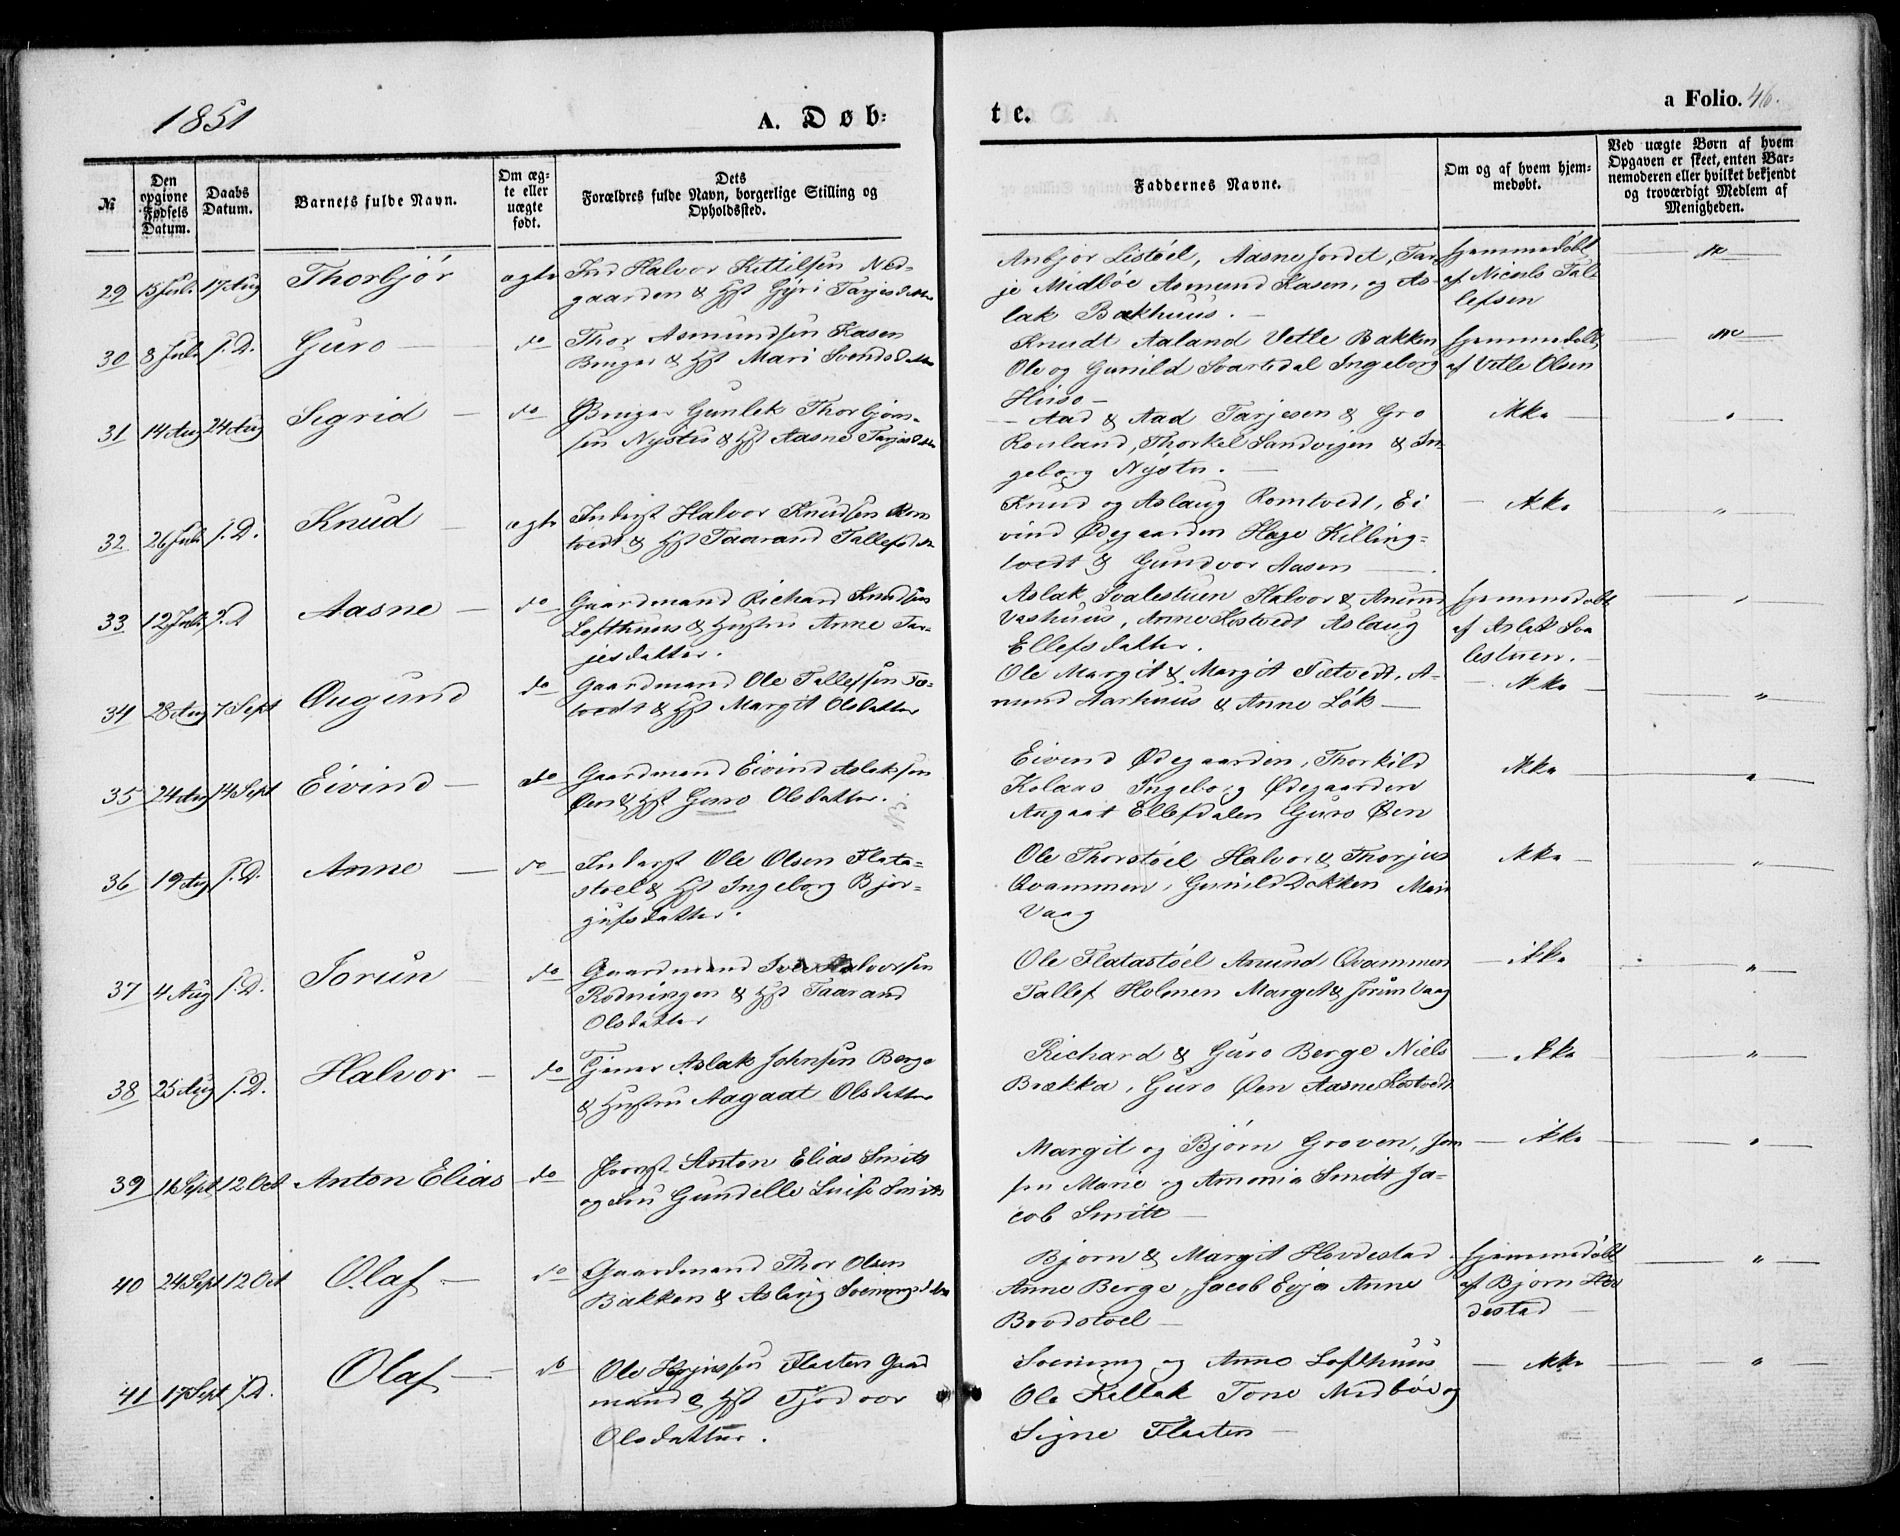 1851
A. Døb-
te.
a Folio. 46.
№
Den opgivne Fødsels Datum.
Daabs Datum.
Barnets fulde Navn.
Om ægte eller uægte født.
Dets Forældres fulde Navn, borgerlige Stilling og Opholdssted.
Faddernes Navne.
Om og af hvem hjemmedøbt.
Ved uægte Børn af hvem Opgaven er skeet, enten Barnemoderen eller hvilket bekjendt og troværdigt Medlem af Menigheden.
29 15 Juli 17 Aug Thorbjør ægte Ind Halvor Kittilsen Ned-
gaarden & Hst Gÿri Tarjesdatter
Anbjør Listöel, Aasne Jordet, Tar-
je Midböe Asmund Kasen, og As-
lak Bakhuus. -
Hjemmedøbt
af Nicols Tal-
lefsen
30 8 Juli s. D. Guro do Thor Asmundsen Kasen
Bruger & Hst Mari Svendsdatter
Knudt Aaland Vetle Bakken
Ole og Gunild Svartdal Ingeborg
Huso -
Hjemmedøbt
af Vetle Olsen
31 14 Aug 24 Aug Sigrid - do Bruger Gunlek Thorbjørn-
sen Nystu & Hst Aasne Tarjesdatter
- Aad & Aad Tarjesen & Gro
Rouland, Thorkel Sandvigen & In-
geborg Nystu. -
Ikke
32 26 Juli s. D. Knud - ægte Inderst Halvor Knudsen Rom
tvedt & Hst Taarand Tallefsdatter
Knud og Aslaug Romtvedt, Ei
vind Ødegaarden Hage Killing-
tvedt & Gundvor Aasen -
Ikke
33 12 Juli s. D Aasne - do Gaardmand Richard Knudsen
Lofthuus & Hustru Anne Tar-
jesdatter.
Aslak Svalestuen Halvor & Anund
Vashuus, Anne Kostvedt Aslaug
Ellefsdatter.
Hjemmedøbt
af Aslak Sva
lestuen. -
34 28 Aug 7 Sept Øugund do Gaardmand Ole Tallefsen Tæ-
tvedt & Hst Margit Olsdatter
Ole Margit & Margit Tætvedt, A-
mund Aarhuus & Anne Løk -
Ikke
35 24 Aug 14 Sept Eivind - do Gaardmand Eivind Aslaksen
Øen & Hst Guro Olsdatter.
Eivind Ødegaarden, Thorkild
Kolaas Ingeborg Ødegaarden
Angaat Ellefdalen Guro Øen
Ikke
36 19 Aug s. D. Anne - do Inderst Ole Olsen Flata-
støel & Hst Ingeborg Bjør-
gufsdatter.
Ole Thorstøel Halvor & Thorjus
Qvammen, Gunild Dokken Mari
Vaag
Ikke -
37 4 Aug s. D. Jorun do Gaardmand Halvorsen
Rodningen & Hst Taarand
Olsdatter
Ole Flatastøel Anund Qvammen
Tallef Holmen Margit & Jorun Vaag
- ikke
38 25 Aug s. D. Halvor - do Tjener Aslak Johnsen Berge
& Hustru Aagaat Olsdatter
Richard & Guro Berge Niels
Brække, Guro Øen Aasne Kostvedt
- Ikke
39 16 Sept 12 Oct Anton Elias - do Anton Elias Smith
og Fru Gundelle Luise Smith
Margit og Bjørn Groven, Jom
fru Marie og Amonia Smitt Ja-
cob Smitt -
- Ikke
40 24 Sept 12 Oct Olaf - do Gaardmand Thor Olsen
Bakken & Aslaug Sveinungsdatter
Bjørn & Margit Hovdestad
Anne Berge, Jacob Evja Anne
Brodstøel -
Hjemmedøbt
af Bjørn Hov
destad -
41 17 Sept s. D. Olaf - do Ole Flaten Gaard
mand & Hst Tjodvor
Olsdatter.
Sveinung og Anne Lofthuus
Ole Kallak Tone Midböe og
Signe Flaten -
- Ikke